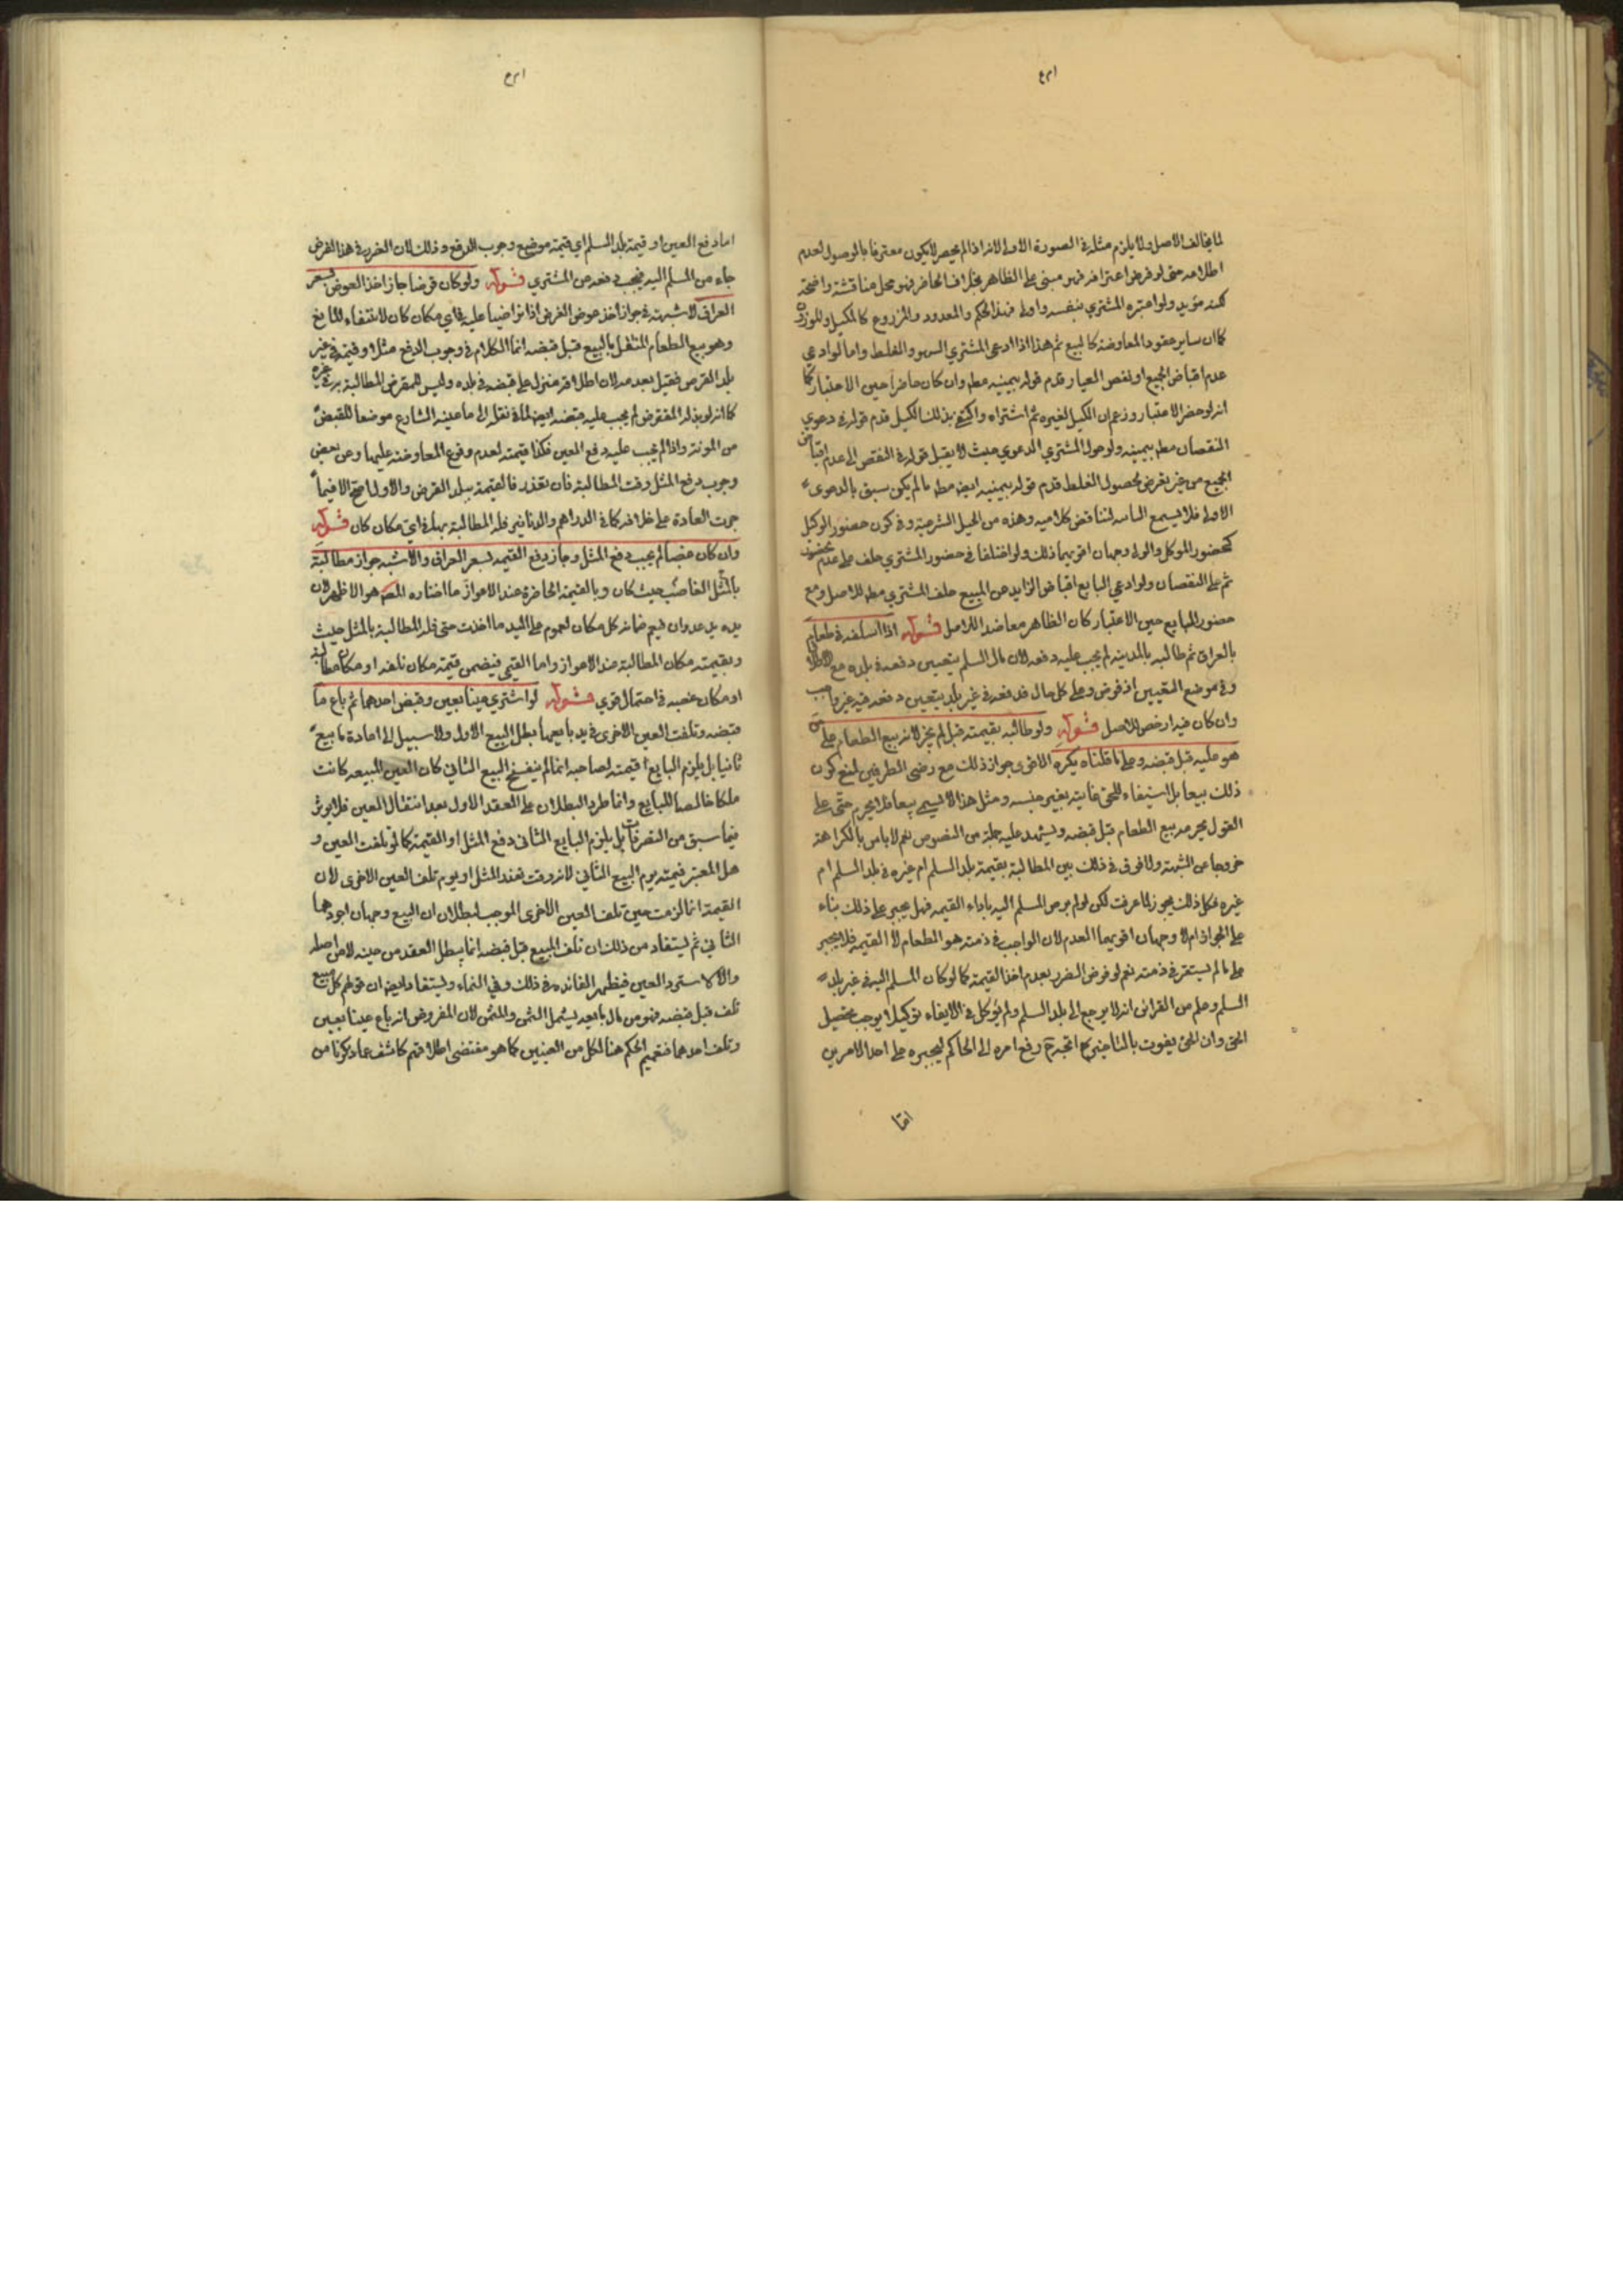 لما يخالف الاصل ولا يلزم مثله في الصورة الاولى لانه اذا لم يحضر لا يكون معترفا بالوصول لعدم
اطلاعه حتى لو فرض اعترافه فهو مبني على الظاهر بخلاف الحاضر فهو محل مناقشة واضحة
لكنه مؤيد ولو اعتبره المشتري بنفسه واولى في هذا الحكم والمعدود والمزروع كالمكيل والموزون
كما ان ساير عقود المعاوضة كالبيع ثم هذا اذا ادعى المشتري السهو والغلط واما لو ادعى
عدم اقباض الجميع او نقص العيار قدم قوله بيمينه مطه وان كان حاضرا حين الاعتبار كما
انه لو حضر الاعتبار وزعم ان الكيل لغيره ثم اشتراه واكتفى بذلك الكيل قدم قوله في دعوى
النقصان مطه بيمينه ولو حول المشتري الدعوى حيث لا يقبل قوله في النقص الى عدم اقباض
الجميع من غير تعرض لحصول الغلط قدم قوله بيمينه ايضه مطه ما لم يكن سبق بالدعوى
الاولى فلا يسمع الثانيه لتناقض كلاميه وهذه من الحيل الشرعية وفي كون حضور الوكيل
كحضور الموكل والولي وجهان اقويهما ذلك ولو اختلفا في حضور المشتري حلف على عدم حضوره
ثم على النقصان ولو ادعى البايع اقباض الزايد عن المبيع حلف المشتري مطه للاصل ومع
حضور البايع حين الاعتبار كان الظاهر معاضدا للاصل قوله اذا اسلفه في طعام
بالعراق ثم طالبه بالمدينه لم يجب عليه دفعه لان مال السلم يتعين دفعه في بلده مع الاطلاق
وفي موضع التعيين اذ فرض وعلى كل حال فدفعه في غير بلد يتعين دفعه فيه غير واجب
وان كان فيه ارخص للاصل قوله ولو طالبه بقيمته قيل لم يجز لانه بيع الطعام على من
هو عليه قبل قبضه وعلى ما قلناه يكره الاقوى جواز ذلك مع رضى الطرفين لمنع كون
ذلك بيعا بل استيفاء للحق غايته بغير جنسه ومثل هذا لا يسمى بيعا فلا يحرم حتى على
القول بحرمه بيع الطعام قبل قبضه ويشهد عليه جملة من النصوص نعم لا باس بالكراهة
خروجا عن الشبهة ولا فرق في ذلك بين المطالبة بقيمة بلد السلم ام غيره في بلد السلم ام
غيره فكل ذلك يجوز لما عرفت لكن لو لم يرض المسلم اليه باداء القيمه فهل يجبر على ذلك بناء
على الجواز ام لا وجهان اقويهما العدم لان الواجب في ذمته هو الطعام لا القيمه فلا يجبر
على ما لم يستقر في ذمته نعم لو فرض الضرر بعدم اخذ القيمة كما لو كان المسلم اليه في غير بلد
السلم وعلم من القرائن انه لا يرجع الى بلد السلم ولم يوكل في الايفاء توكيلا يوجب تحصيل
الحق وان الحق يفوت بالتاخير اتجه رفع امره الى الحاكم ليجبره على احد الامرين
اما
اما دفع العين او قيمة بلد السلم اي قيمة موضع وجوب الدفع وذلك لان الضرر في هذا الفرض
جاء من المسلم اليه فيجب دفعه عن المشتري قوله ولو كان قرضا جاز اخذ العوض بسعر
العراق لا شبهة في جواز اخذ عوض القرض اذا تراضيا عليه في اي مكان كان لانتفاء المانع
وهو بيع الطعام المنتقل بالبيع قبل قبضه انما الكلام في وجوب الدفع مثلا او قيمة في غير
بلد القرض فقيل بعدمه لان اطلاقه منزل على قبضه في بلده وليس للمقرض المطالبة به في غيره
كما انه لو بذله المقترض لم يجب عليه قبضه ايضه لما في نقله الى ما عينه الشارع موضعا للقبض
من المونة واذا لم يجب عليه دفع العين فكذا قيمته لعدم وقوع المعاوضة عليها وعن بعض
وجوب دفع المثل وقت المطالبة فان تعذر فالقيمة ببلد القرض والاول اصح الا فيما
جرت العادة على خلافه كما في الدراهم والدنانير فله المطالبة بها في اي مكان كان قوله
وان كان غصبا لم يجب دفع المثل وجاز دفع القيمه بسعر العراق والاشبه جواز مطالبة
بالمثل الغاصب حيث كان وبالقيمة الحاضرة عند الاعواز ما اختاره المصه هو الاظهر لان
يده يد عدوان فيعم ضمانه كل مكان لعموم على اليد ما اخذت حتى فله المطالبة بالمثل حيث
وبقيمته مكان المطالبة عند الاعواز واما القيمي فيضمن قيمة مكان تلفه او مكان مطالبة
او مكان غصبه في احتمال قوي قوله لو اشترى عينا بعين وقبض احدهما ثم باع ما
قبضه وتلفت العين الاخرى في يد بايعها بطل البيع الاول ولا سبيل الى اعادة ما بيع
ثانيا بل يلزم البايع قيمته لصاحبه انما لم ينفسخ البيع الثاني كان العين المبيعه كانت
ملكا خالصا للبايع وانما طرء البطلان على العقد الاول بعد انتقال العين فلا يؤثر
فيما سبق من التصرفات بل يلزم البايع الثاني دفع المثل او القيمة كما لو تلفت العين و
هل المعتبر قيمته يوم البيع الثاني لانه وقت تعذر المثل او يوم تلف العين الاخرى لان
القيمة انما لزمت حين تلف العين الاخرى الموجب لبطلان البيع وجهان اجودهما
الثاني ثم يستفاد من ذلك ان تلف المبيع قبل قبضه انما يبطل العقد من حينه لا من اصله
والا لاسترد العين فيظهر الفائده في ذلك وفي النماء ويستفاد ايضه ان قولهم كل مبيع
تلف قبل قبضه فهو من مال بايعه يشمل الثمن والمثمن لان المفروض انه باع عينا بعين
وتلف احدهما فتعميم الحكم هنا لكل من العينين كما هو مقتضى اطلاقهم كاشف عما ذكرنا من